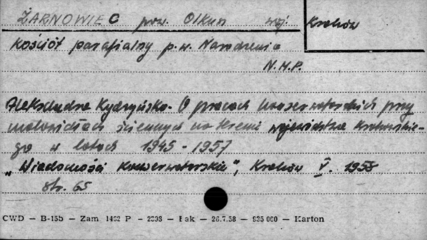 ŻARNOWIEC pow. Olkusz woj. Kraków
Kościół parafialny p.w. Narodzenia
N.M.P.
Aleksandra Kydryńska. O pracach konserwatorskich przy
malowidłach ściennych na terenie województwa krakowskie-
go w latach 1945-1957
"Wiadomości Konserwatorskie", Kraków I. 1958
str. 65
CWD — B-15b — Zam 1402 P - 2338 — Łak — 26.7.58 — 535 000 — Karton